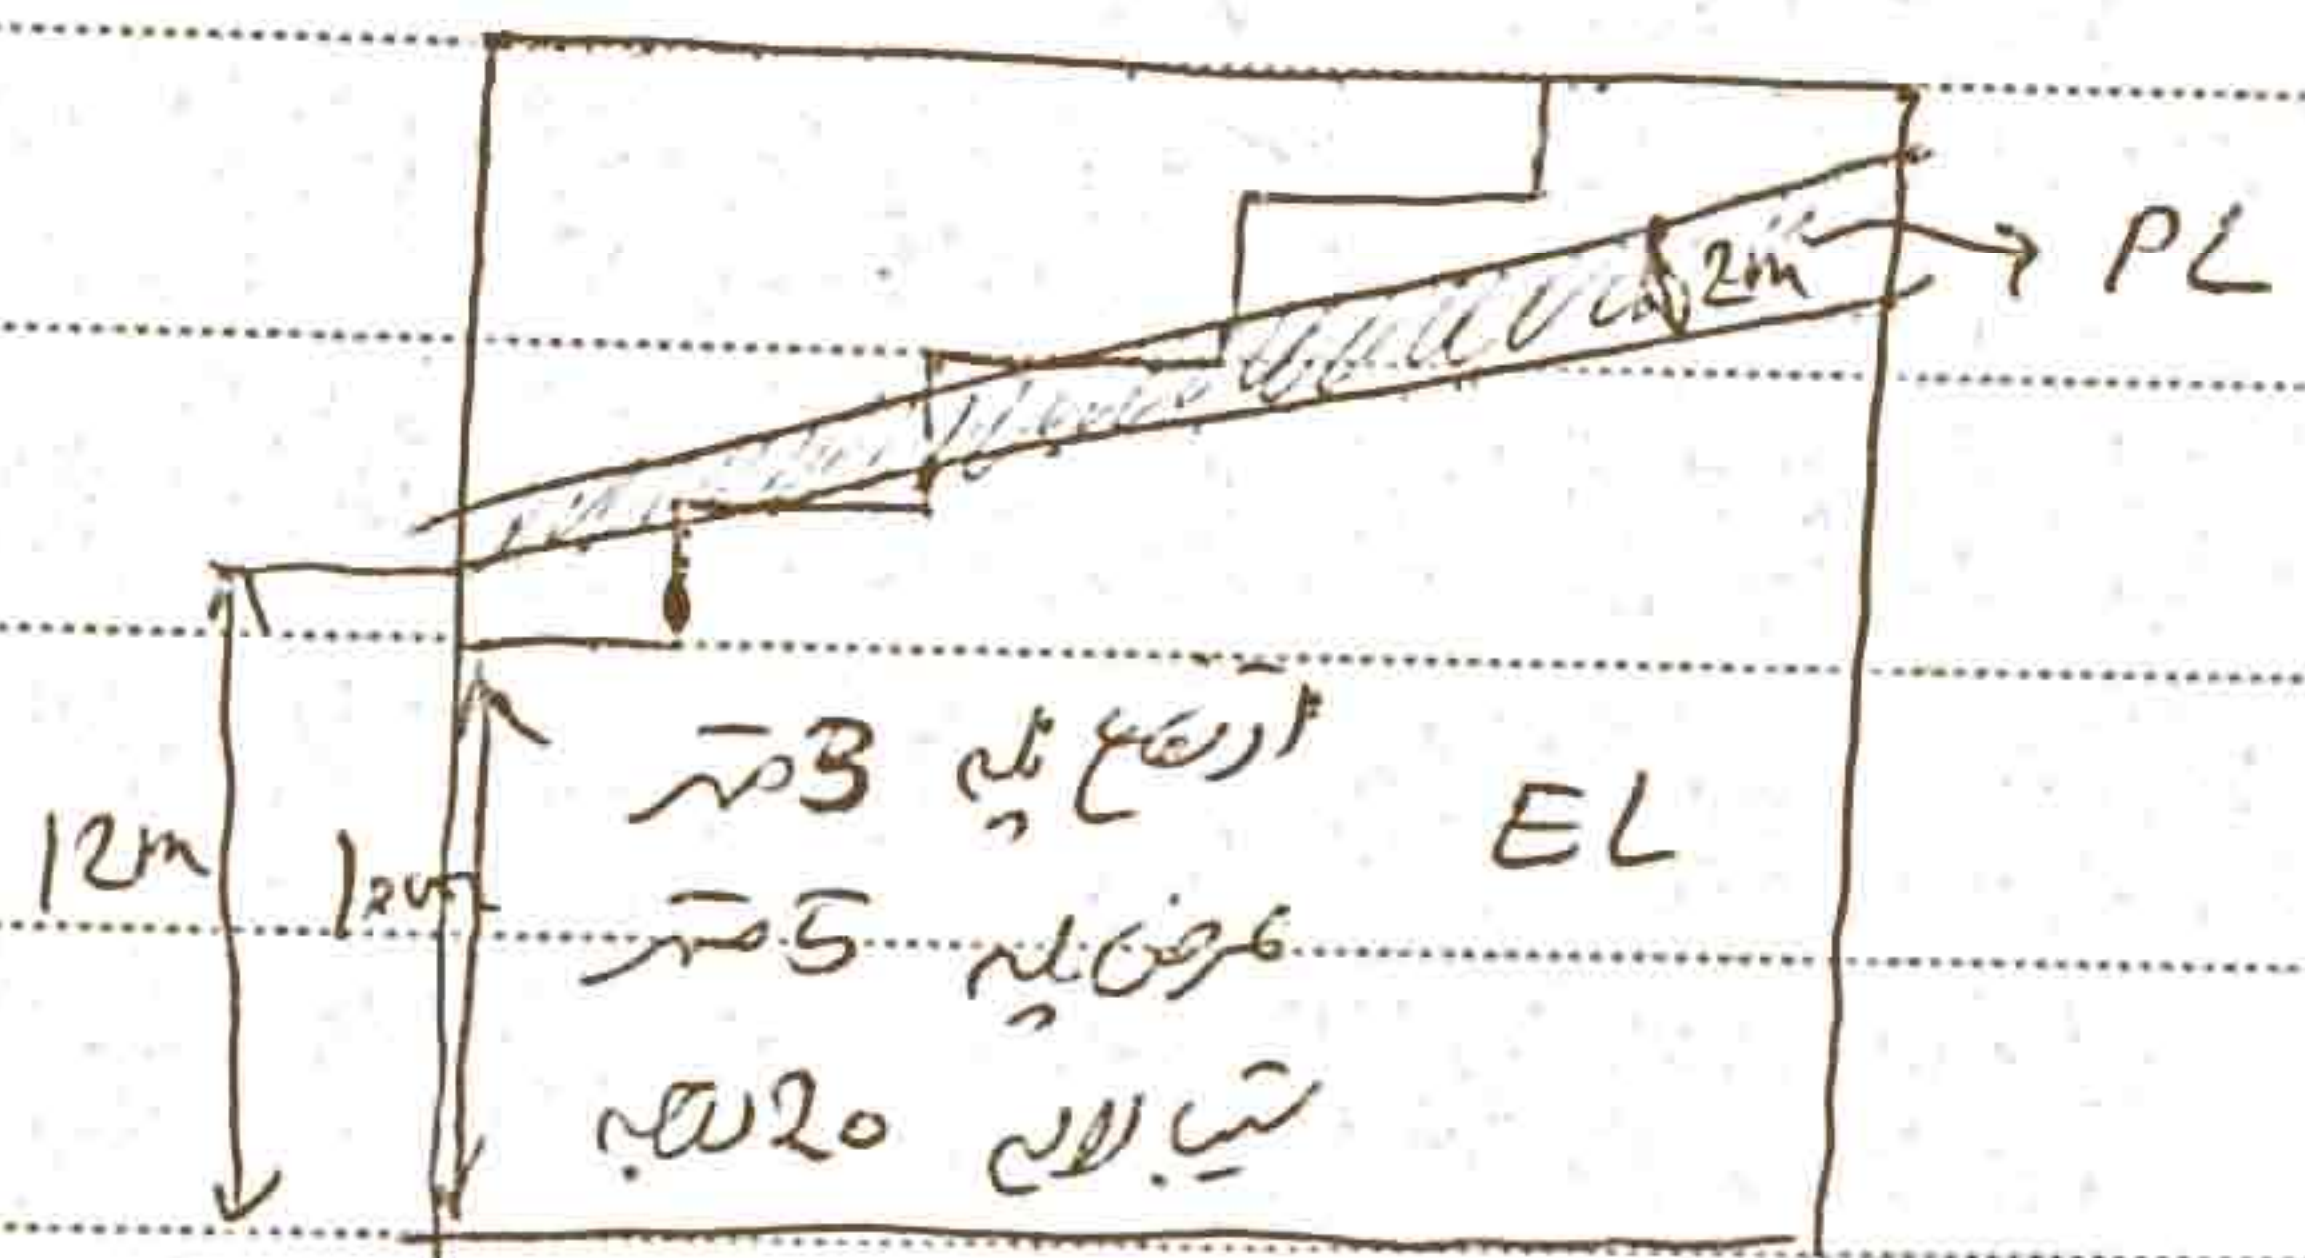 2m PL
12m
ارتفاع پله 3 متر
EL
عرض پله 5 متر
شیب لایه 20 درجه